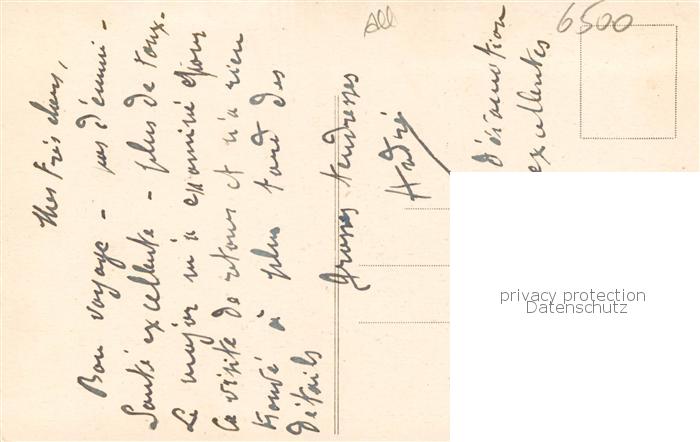 Mes très chers,
Bon voyage - pas d'ennui -
Santé excellente - plus de toux.
Le major m'a examiné pour
la visite de retour et n'a rien
trouvé à plus tard des
détails
Grosses tendresses
André
excellentes
All
6500
privacy protection
Datenschutz